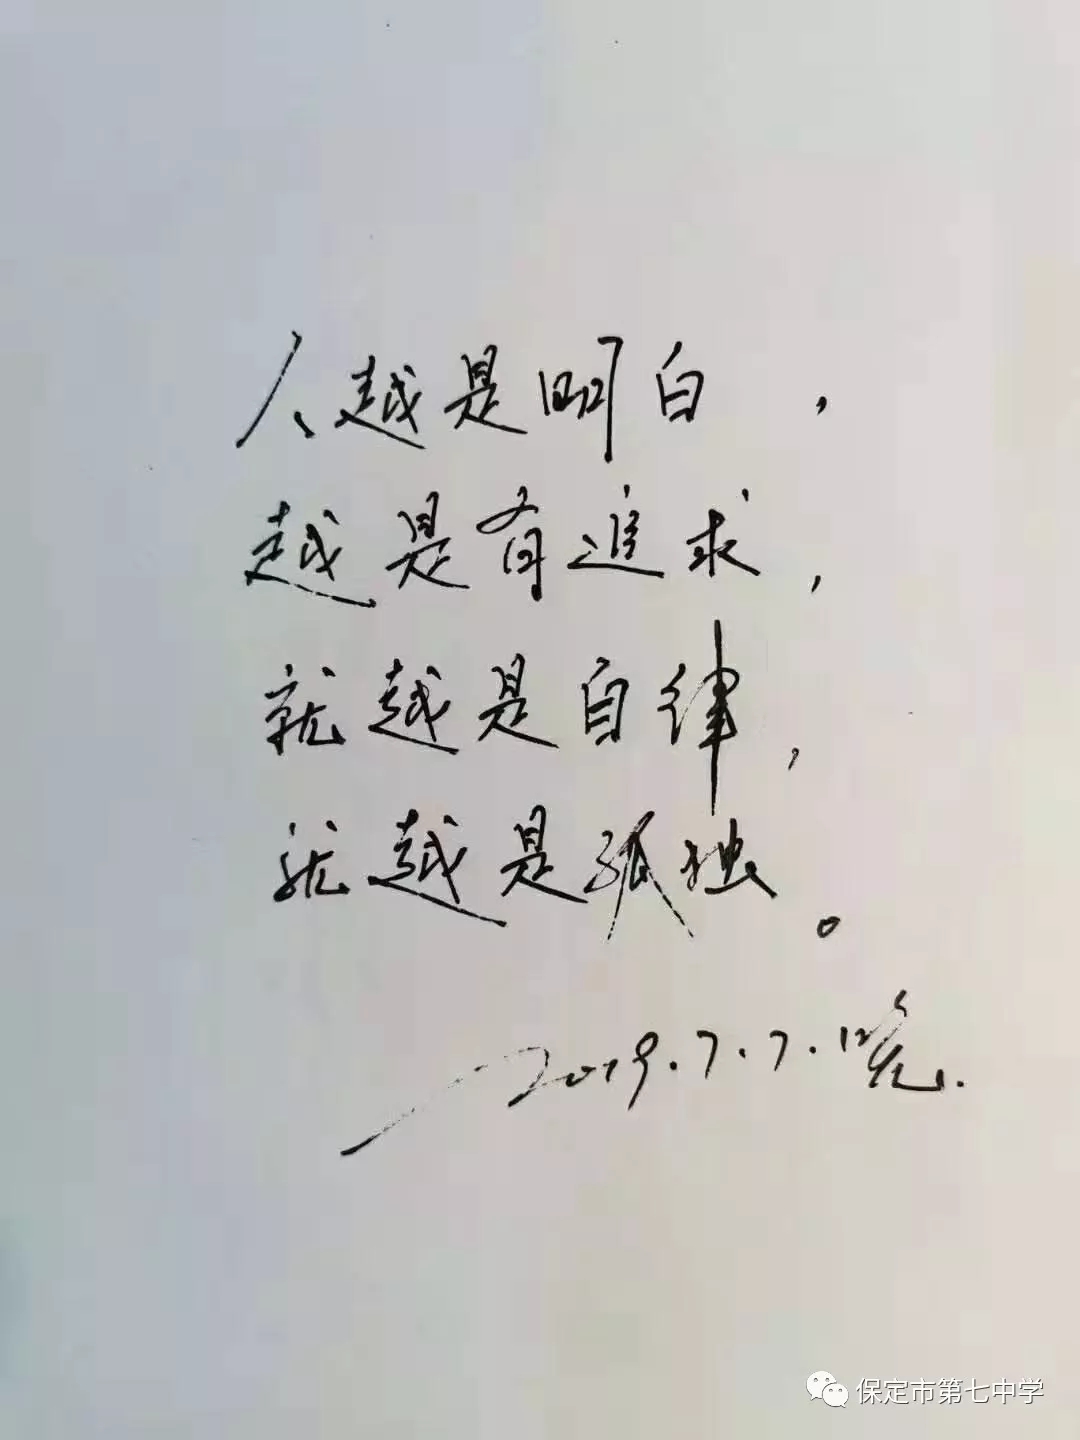 人越是明白，
越是有追求，
就越是自律，
就越是孤独。
2019.7.7.晓.
保定市第七中学